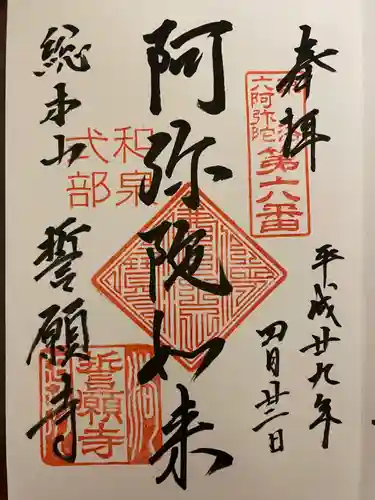 奉拝
洛陽
六阿弥陀
第六番
平成廿九年
四月廿三日
阿弥陀如来
和泉
式部
総本山
誓願寺
誓願寺